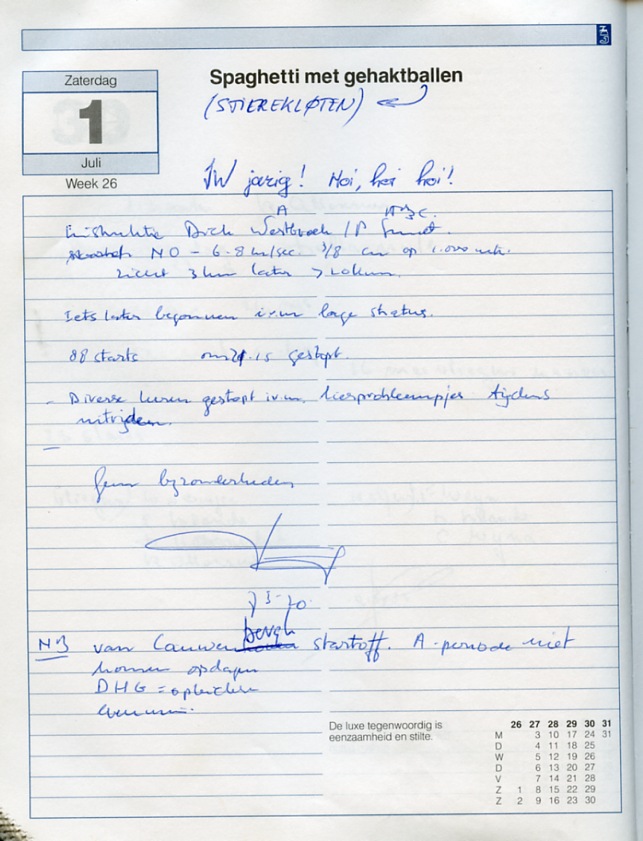 Zaterdag
1
Juli
Week 26
Spaghetti met gehaktballen
(STIEREKLØTEN)
JW jarig! Hoi, hoi hoi!
A
Dick Westbroek / P
NO - 6-8 m/sec 3/8 cu op 1.000 mtr.
zicht 3 km later > 10 km.
Iets later begonnen i.v.m. lage stratus.
88 starts om 21.15 gestopt.
- Diverse keren gestopt i.v.m. lierprobleempjes tijdens
uitrijden.
-
Geen byzonderheden
NB van Cauwenbergh startoff. A-periode niet
komen opdagen
DHG = opleider
De luxe tegenwoordig is
eenzaamheid en stilte.
26 27 28 29 30 31
M 3 10 17 24 31
D 4 11 18 25
W 5 12 19 26
D 6 13 20 27
V 7 14 21 28
Z 1 8 15 22 29
Z 2 9 16 23 30